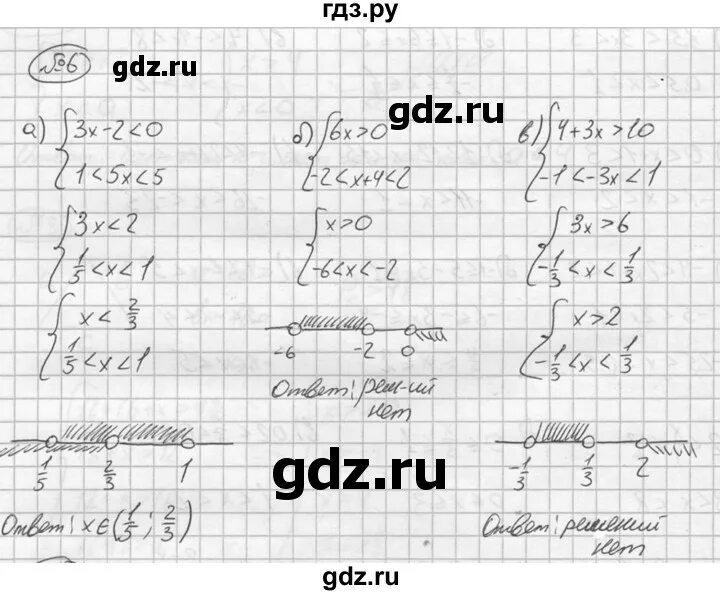 гдз.ру
№6
gdz.ru
gdz.ru
gdz.ru
а) { 3x-2<0
1<5x<5
{ 3x<2
1/5<x<1
{ x<2/3
1/5<x<1
1/5 2/3 1
Ответ: x∈(1/5; 2/3)
б) { 6x>0
-2<x+4<2
{ x>0
-6<x<-2
-6 -2 0
Ответ: реш-ий
нет
в) { 4+3x>10
-1<-3x<1
{ 3x>6
-1/3<x<1/3
{ x>2
-1/3<x<1/3
-1/3 1/3 2
Ответ: решений
нет
gdz.ru
gdz.ru
gdz.ru
gdz.ru
gdz.ru